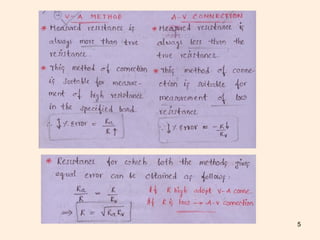 → V-A METHOD
* Measured resistance is
always more than true
resistance.
* This method of connection
is suitable for measure-
ment of high resistance
in the specified band.
∴ ↓ % Error = Ra / R↑
A-V CONNECTION
* Measured resistance is
always less than the
true resistance.
* This method of conne-
ction is suitable for
measurement of low
resistance
∴ ↓ % Error = - R↓ / Rv
* Resistance for which both the methods gives
equal error can be obtained as follows:
Ra / R = R / Rv
⇒ R = √Ra Rv
If R high adopt V-A conne.
If R is low → A-V connection
5